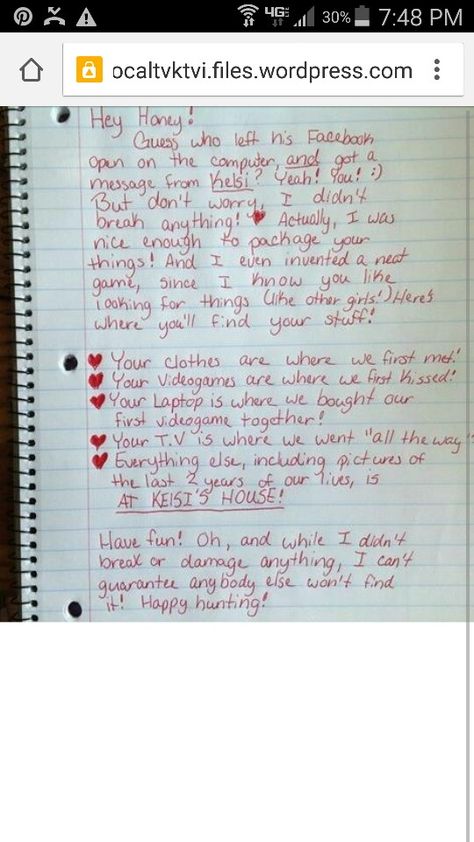 4G LTE 30% 7:48 PM
ocaltvktvi.files.wordpress.com
Hey Honey!
Guess who left his Facebook
open on the computer, and got a
message from Kelsi? Yeah! You! :)
But don't worry, I didn't
break anything! ♥ Actually, I was
nice enough to package your
things! And I even invented a neat
game, since I know you like
looking for things (like other girls!) Here's
where you'll find your stuff!
♥ Your clothes are where we first met!
♥ Your Videogames are where we first kissed!
♥ Your Laptop is where we bought our
first videogame together!
♥ Your T.V is where we went "all the way"
♥ Everything else, including pictures of
the last 2 years of our lives, is
AT KELSI'S HOUSE!
Have fun! Oh, and while I didn't
break or damage anything, I can't
guarantee anybody else won't find
it! Happy hunting!